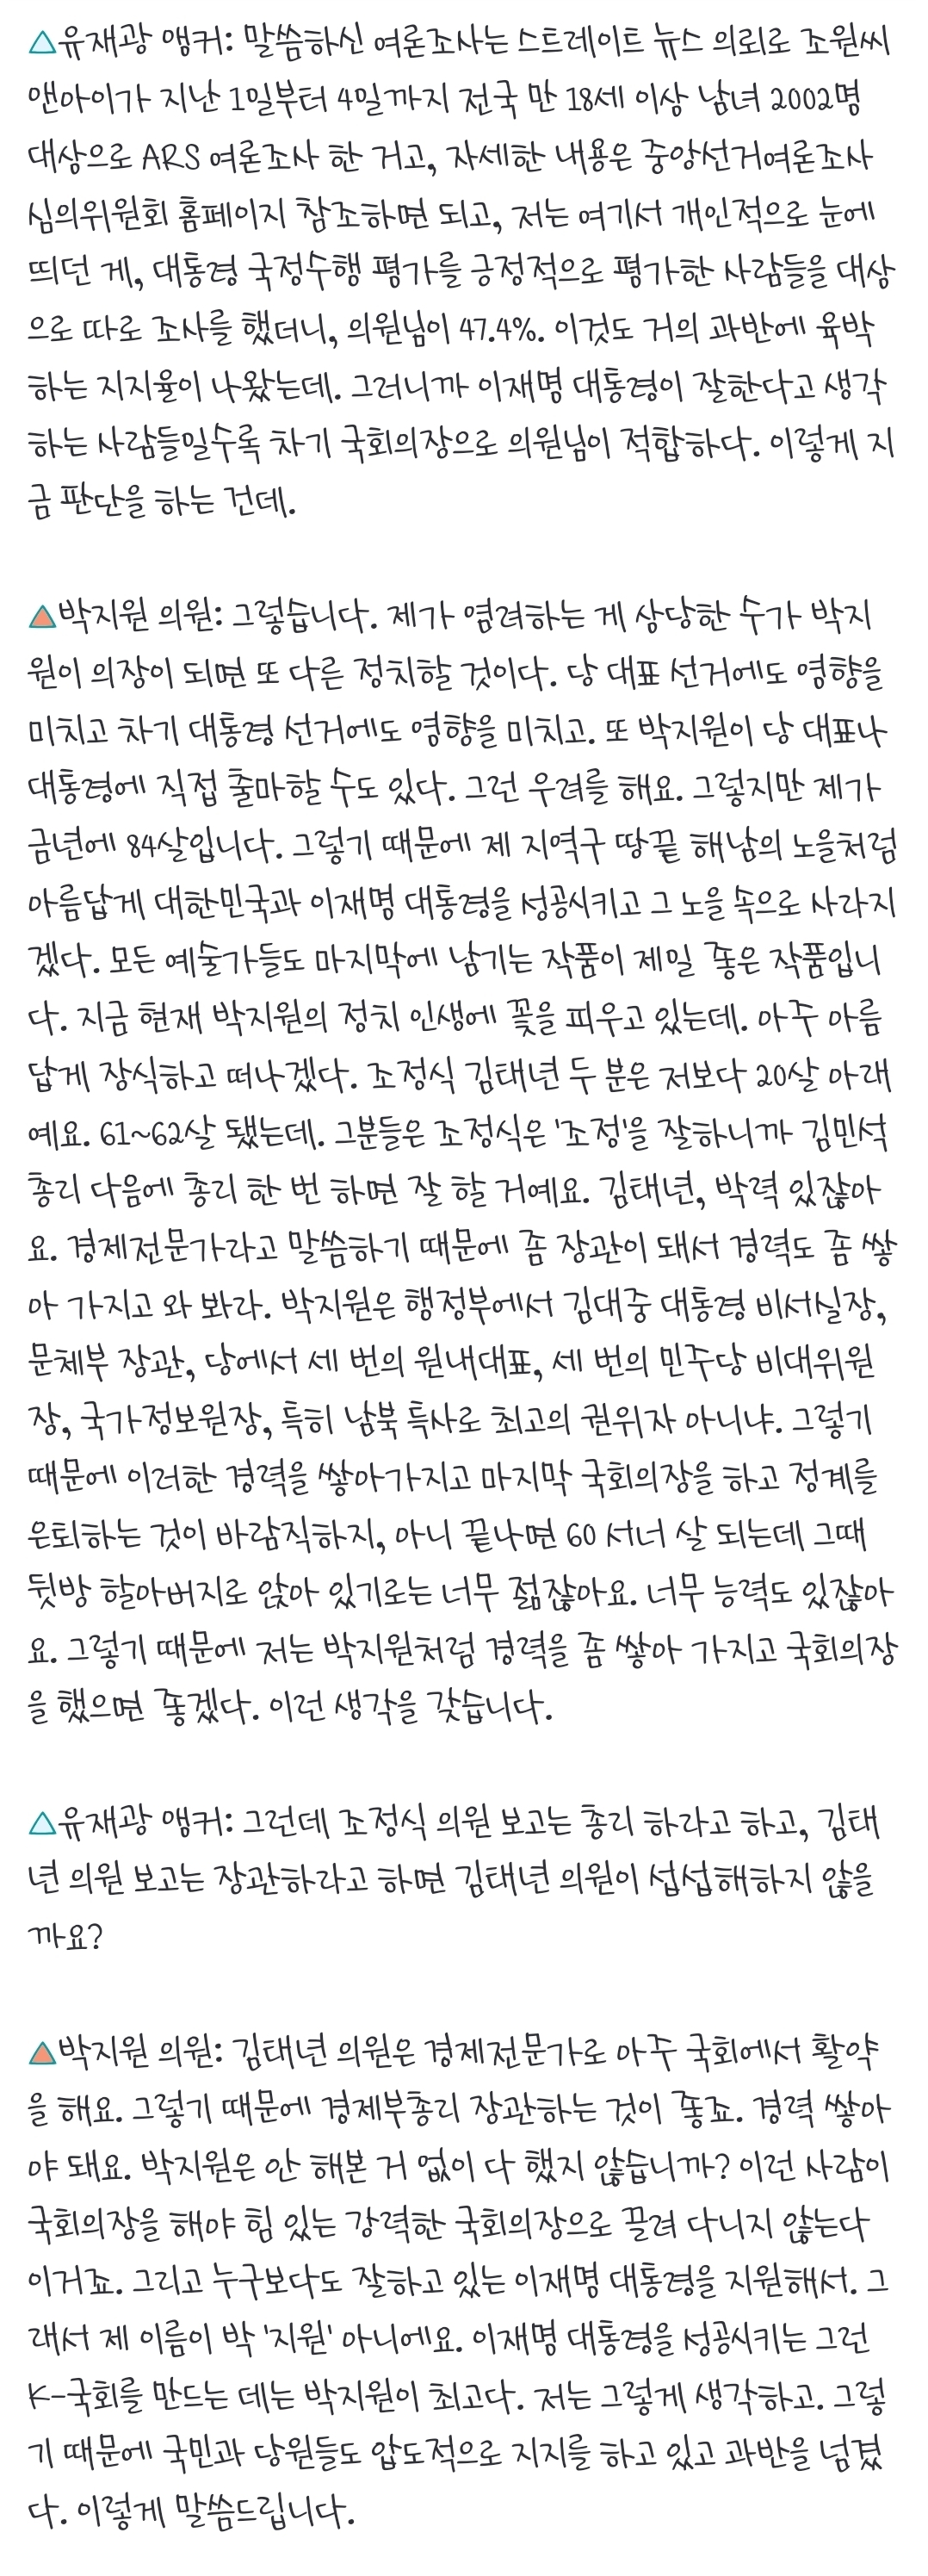 △유재광 앵커: 말씀하신 여론조사는 스트레이트 뉴스 의뢰로 조원씨
앤아이가 지난 1일부터 4일까지 전국 만 18세 이상 남녀 2002명
대상으로 ARS 여론조사 한 거고, 자세한 내용은 중앙선거여론조사
심의위원회 홈페이지 참조하면 되고, 저는 여기서 개인적으로 눈에
띄던 게, 대통령 국정수행 평가를 긍정적으로 평가한 사람들을 대상
으로 따로 조사를 했더니, 의원님이 47.4%. 이것도 거의 과반에 육박
하는 지지율이 나왔는데. 그러니까 이재명 대통령이 잘한다고 생각
하는 사람들일수록 차기 국회의장으로 의원님이 적합하다. 이렇게 지
금 판단을 하는 건데.
▲박지원 의원: 그렇습니다. 제가 염려하는 게 상당한 수가 박지
원이 의장이 되면 또 다른 정치할 것이다. 당 대표 선거에도 영향을
미치고 차기 대통령 선거에도 영향을 미치고. 또 박지원이 당 대표나
대통령에 직접 출마할 수도 있다. 그런 우려를 해요. 그렇지만 제가
금년에 84살입니다. 그렇기 때문에 제 지역구 땅끝 해남의 노을처럼
아름답게 대한민국과 이재명 대통령을 성공시키고 그 노을 속으로 사라지
겠다. 모든 예술가들도 마지막에 남기는 작품이 제일 좋은 작품입니
다. 지금 현재 박지원의 정치 인생에 꽃을 피우고 있는데. 아주 아름
답게 장식하고 떠나겠다. 조정식 김태년 두 분은 저보다 20살 아래
예요. 61~62살 됐는데. 그분들은 조정식은 '조정'을 잘하니까 김민석
총리 다음에 총리 한 번 하면 잘 할 거예요. 김태년, 박력 있잖아
요. 경제전문가라고 말씀하기 때문에 좀 장관이 돼서 경력도 좀 쌓
아 가지고 와 봐라. 박지원은 행정부에서 김대중 대통령 비서실장,
문체부 장관, 당에서 세 번의 원내대표, 세 번의 민주당 비대위원
장, 국가정보원장, 특히 남북 특사로 최고의 권위자 아니냐. 그렇기
때문에 이러한 경력을 쌓아가지고 마지막 국회의장을 하고 정계를
은퇴하는 것이 바람직하지, 아니 끝나면 60 서너 살 되는데 그때
뒷방 할아버지로 앉아 있기로는 너무 젊잖아요. 너무 능력도 있잖아
요. 그렇기 때문에 저는 박지원처럼 경력을 좀 쌓아 가지고 국회의장
을 했으면 좋겠다. 이런 생각을 갖습니다.
△유재광 앵커: 그런데 조정식 의원 보고는 총리 하라고 하고, 김태
년 의원 보고는 장관하라고 하면 김태년 의원이 섭섭해하지 않을
까요?
▲박지원 의원: 김태년 의원은 경제전문가로 아주 국회에서 활약
을 해요. 그렇기 때문에 경제부총리 장관하는 것이 좋죠. 경력 쌓아
야 돼요. 박지원은 안 해본 거 없이 다 했지 않습니까? 이런 사람이
국회의장을 해야 힘 있는 강력한 국회의장으로 끌려 다니지 않는다
이거죠. 그리고 누구보다도 잘하고 있는 이재명 대통령을 지원해서. 그
래서 제 이름이 박 '지원' 아니에요. 이재명 대통령을 성공시키는 그런
K-국회를 만드는 데는 박지원이 최고다. 저는 그렇게 생각하고. 그렇
기 때문에 국민과 당원들도 압도적으로 지지를 하고 있고 과반을 넘겼
다. 이렇게 말씀드립니다.